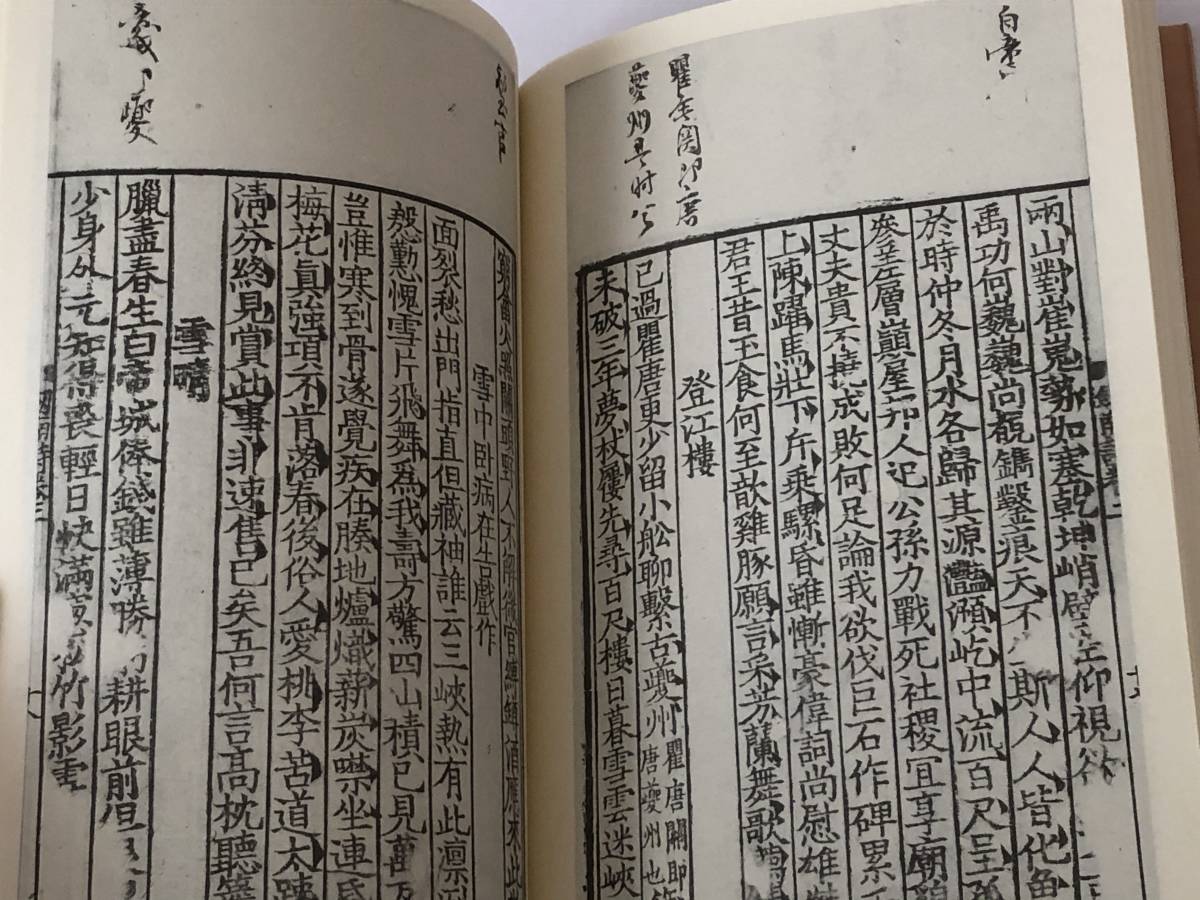 兩山對崔嵬勢如塞乾坤峭壁空仰視欲
禹功何巍巍尚覩鐫鑿痕天不斯人人皆化魚
於時仲冬月水各歸其源灩澦屹中流百尺呈孤
參差層巔屋邦人祀公孫力戰死社稷宜享廟貌
丈夫貴不撓成敗何足論我欲伐巨石作碑累千
上陳躍馬壯下斥乘騾昏雖慚豪偉詞尚慰雄
君王昔玉食何至歆雞豚願言采芳蘭舞歌
登江樓
已過瞿唐更少留小舩聊繫古夔州 瞿唐關即
唐夔州也
未破三年夢杖屨先尋百尺樓日暮雪雲迷峽
關頭野人不解微官縛
雪中卧病在告戲作
面裂愁出門指直但藏袖誰云三峽熱有此凛冽
慇懃愧雪片飛舞為我壽方驚四山積已見萬瓦
豈惟寒到骨遂覺疾在腠地爐熾薪炭噤坐連昏
梅花真強項不肯落春後俗人愛桃李苦道太踈
清芬終見賞此事非速售已矣吾何言髙枕聽簷
雪晴
臘盡春生白帝城俸錢雖薄勝耕眼前但
少身外元知得喪輕日快滿竹影雪